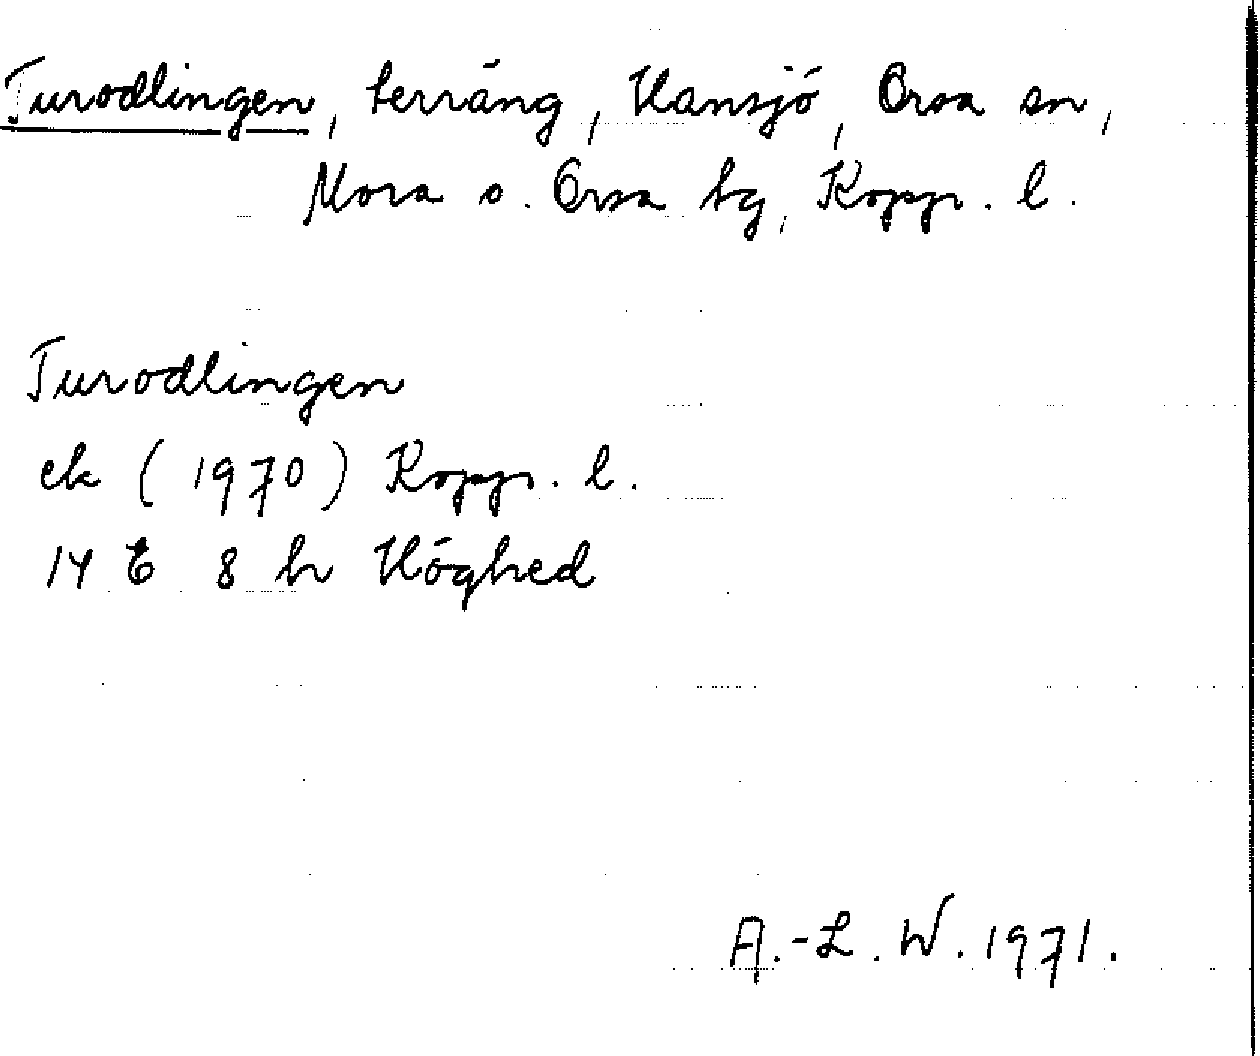 Turodlingen, terräng, Hansjö, Orsa sn,
Mora o. Orsa tg, Kopp. l.
Turodlingen
ek (1970) Kopp. l.
14 E 8 h Höghed
A.-L. W. 1971.